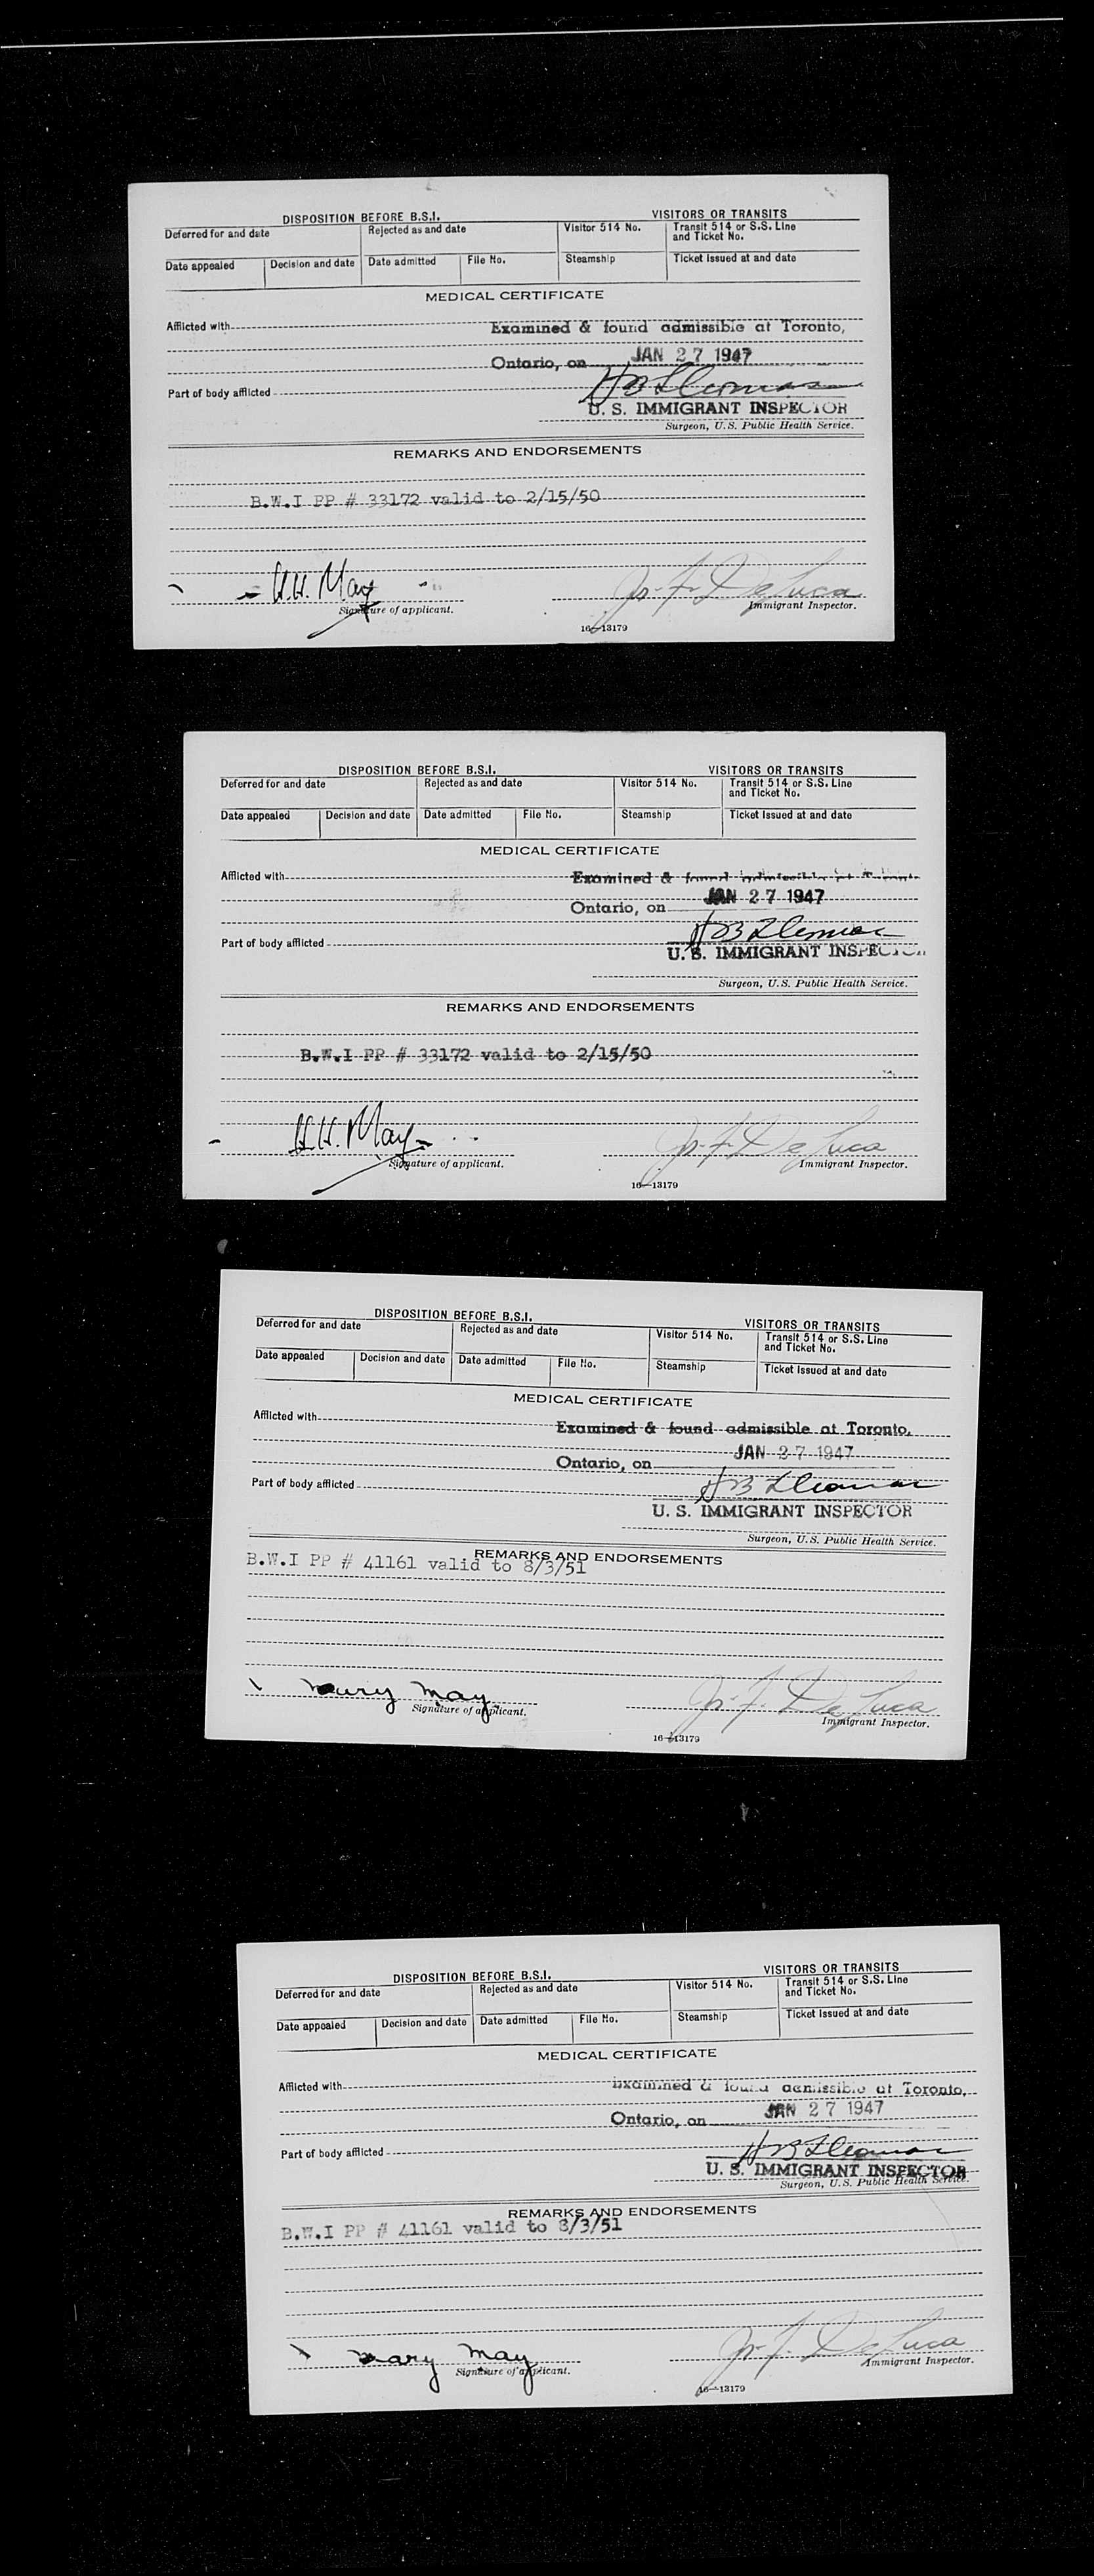 DISPOSITION BEFORE B.S.I. VISITORS OR TRANSITS
Deferred for and date Rejected as and date Visitor 514 No. Transit 514 or S.S. Line and Ticket No.
Date appealed Decision and date Date admitted File No. Steamship Ticket issued at and date
MEDICAL CERTIFICATE
Afflicted with Examined & found admissible at Toronto,
Ontario, on JAN 27 1947
Part of body afflicted
U. S. IMMIGRANT INSPECTOR
Surgeon, U.S. Public Health Service.
REMARKS AND ENDORSEMENTS
B.W.I PP # 33172 valid to 2/15/50
H.H. May Jos. F. De Luca
Signature of applicant. Immigrant Inspector.
16—13179
DISPOSITION BEFORE B.S.I. VISITORS OR TRANSITS
Deferred for and date Rejected as and date Visitor 514 No. Transit 514 or S.S. Line and Ticket No.
Date appealed Decision and date Date admitted File No. Steamship Ticket issued at and date
MEDICAL CERTIFICATE
Afflicted with Examined & found admissible at
Ontario, on JAN 27 1947
Part of body afflicted
U. S. IMMIGRANT INSPECTOR
Surgeon, U.S. Public Health Service.
REMARKS AND ENDORSEMENTS
B.W.I PP # 33172 valid to 2/15/50
H.H. May Jos. F. De Luca
Signature of applicant. Immigrant Inspector.
16—13179
DISPOSITION BEFORE B.S.I. VISITORS OR TRANSITS
Deferred for and date Rejected as and date Visitor 514 No. Transit 514 or S.S. Line and Ticket No.
Date appealed Decision and date Date admitted File No. Steamship Ticket issued at and date
MEDICAL CERTIFICATE
Afflicted with Examined & found admissible at Toronto,
Ontario, on JAN 27 1947
Part of body afflicted
U. S. IMMIGRANT INSPECTOR
Surgeon, U.S. Public Health Service.
REMARKS AND ENDORSEMENTS
B.W.I PP # 41161 valid to 8/3/51
Mary May Jos. F. De Luca
Signature of applicant. Immigrant Inspector.
16—13179
DISPOSITION BEFORE B.S.I. VISITORS OR TRANSITS
Deferred for and date Rejected as and date Visitor 514 No. Transit 514 or S.S. Line and Ticket No.
Date appealed Decision and date Date admitted File No. Steamship Ticket issued at and date
MEDICAL CERTIFICATE
Afflicted with Examined & found admissible at Toronto,
Ontario, on JAN 27 1947
Part of body afflicted
U. S. IMMIGRANT INSPECTOR
Surgeon, U.S. Public Health Service.
REMARKS AND ENDORSEMENTS
B.W.I PP # 41161 valid to 8/3/51
Mary May Jos. F. De Luca
Signature of applicant. Immigrant Inspector.
16—13179